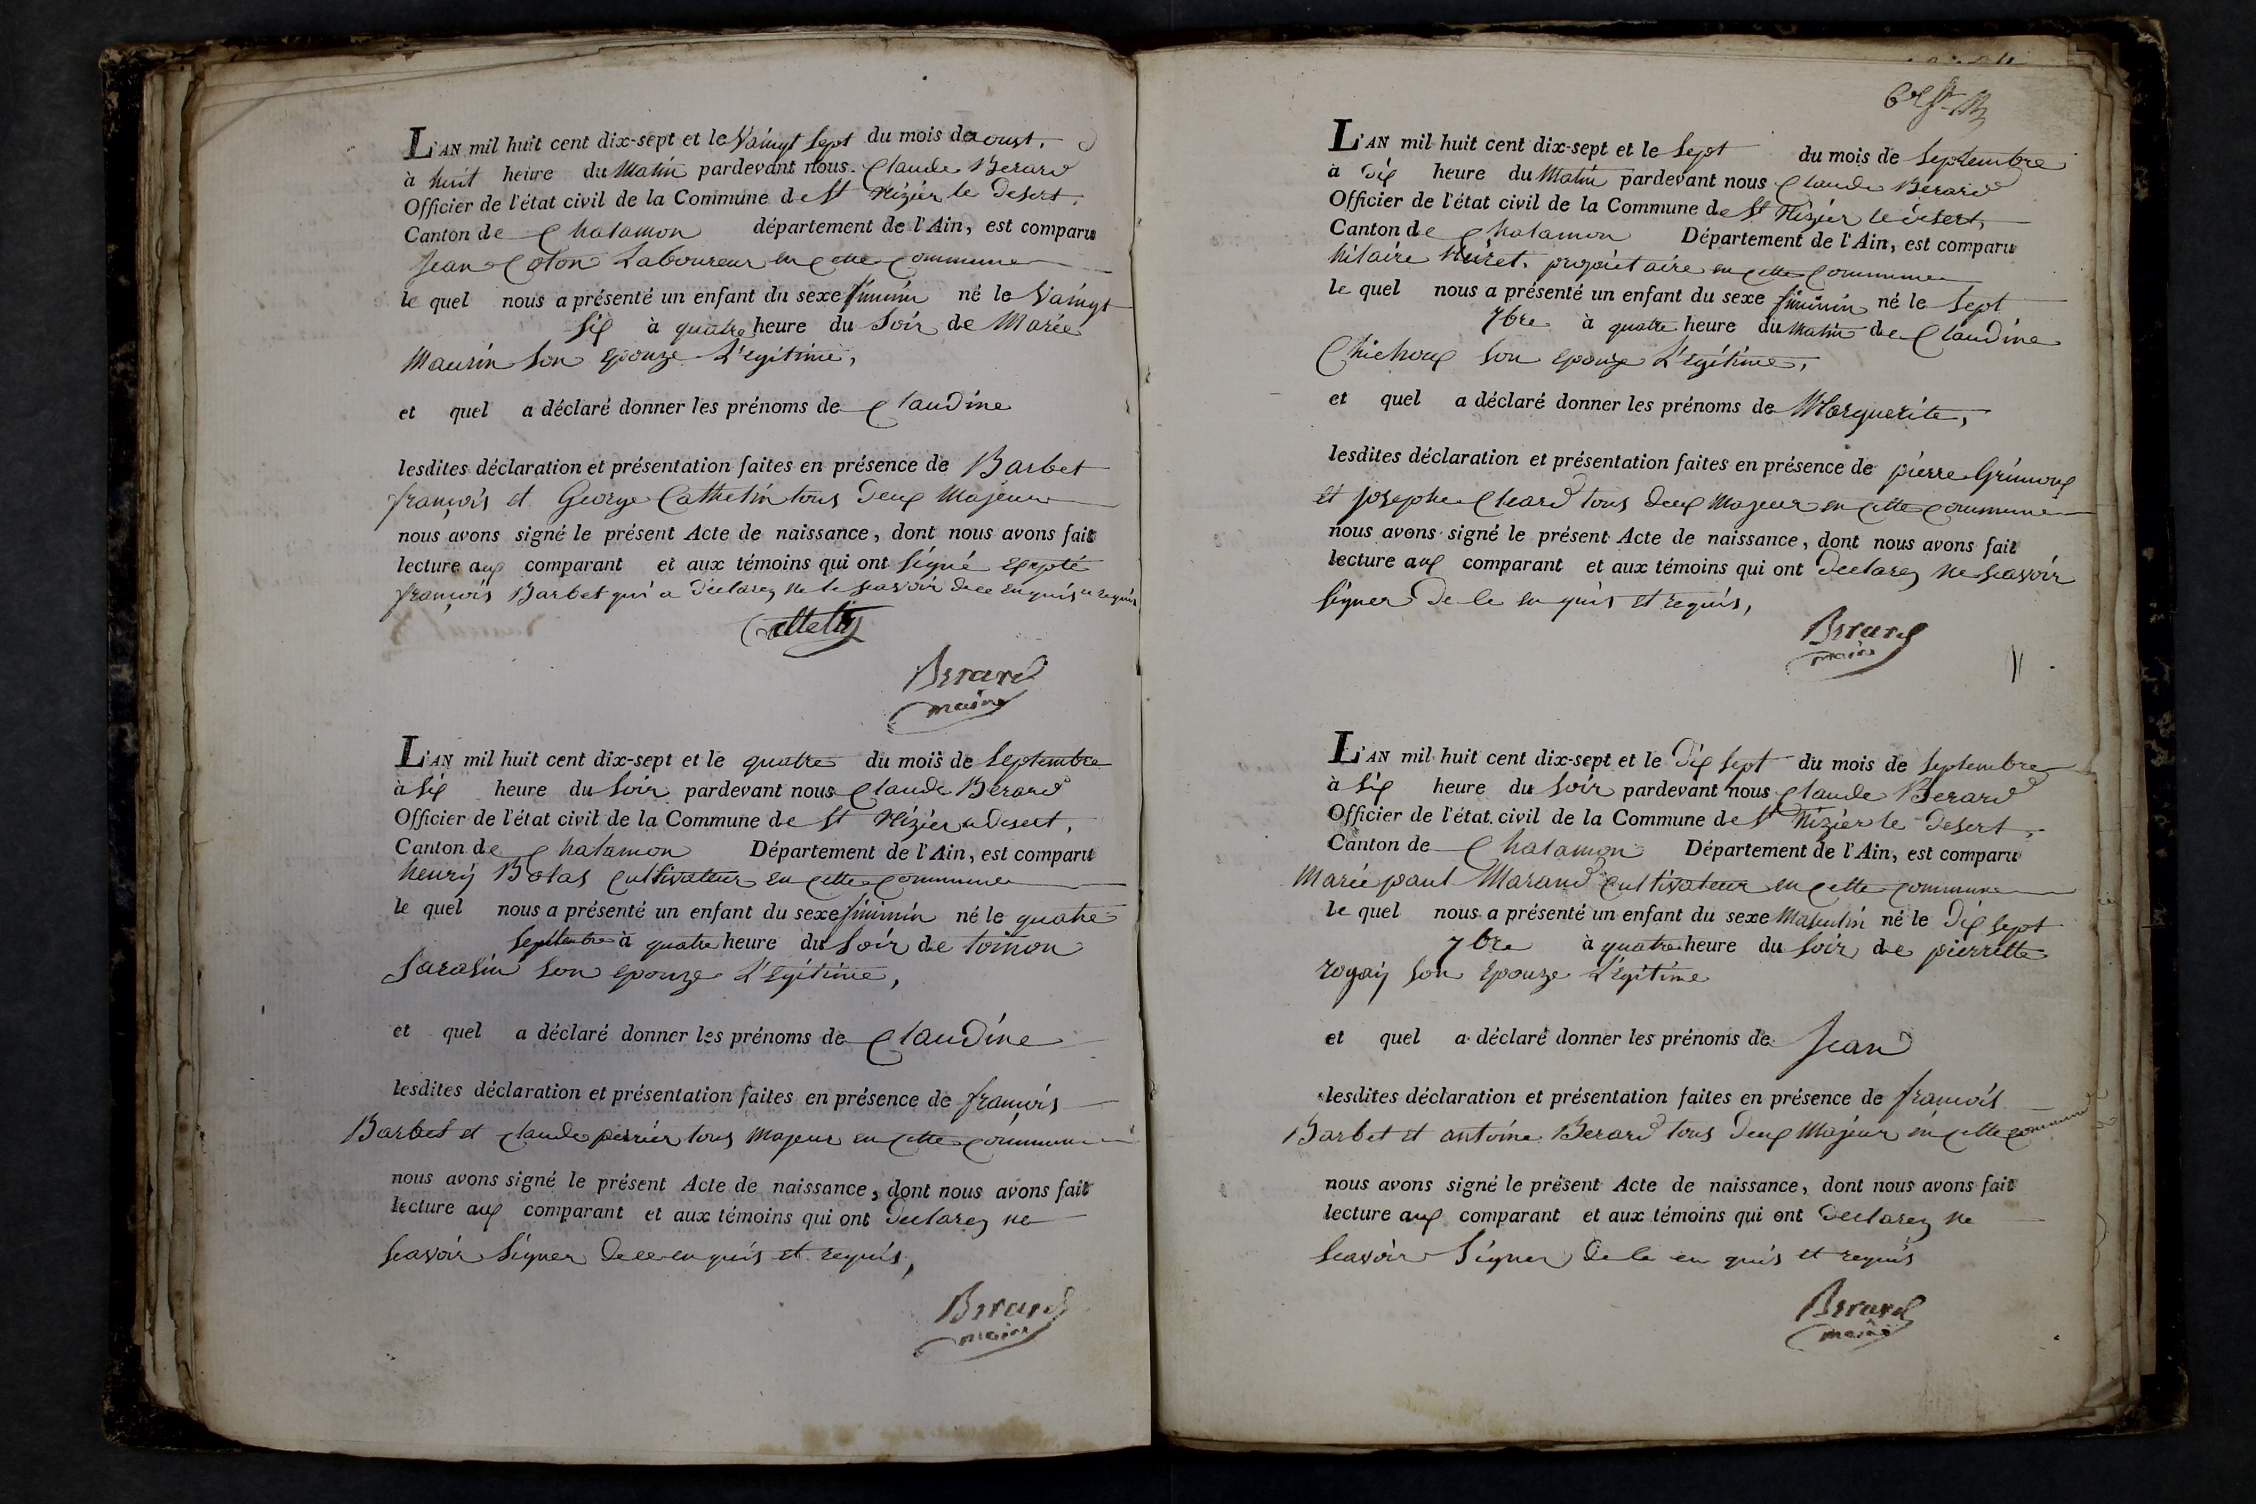 L'AN mil huit cent dix-sept et le Vaingt Sept du mois de aoust,
à huit heure du Matin pardevant nous Claude Berard
Officier de l'état civil de la Commune de St Nizier le Desert,
Canton de Chalamon département de l'Ain, est comparu
Jean Coton Laboureur en cette commune
le quel nous a présenté un enfant du sexe féminin né le Vaingt
Six à quatre heure du Soir de Marie
Maurin Son epouze L'egitime,
et quel a déclaré donner les prénoms de Claudine
lesdites déclaration et présentation faites en présence de Barbet
françois et George Cathelin tous deux Majeur
nous avons signé le présent Acte de naissance, dont nous avons fait
lecture aux comparant et aux témoins qui ont Signé Exepté
françois Barbet qui a Déclarez ne le scavoir de ce enquis et requis
Berard
maire
L'AN mil huit cent dix-sept et le quatre du mois de Septembre
à Six heure du Soir pardevant nous Claude Berard
Officier de l'état civil de la Commune de St Nizier le Desert,
Canton de Chalamon Département de l'Ain, est comparu
henry Bolas Cultivateur en cette commune
le quel nous a présenté un enfant du sexe féminin né le quatre
Septembre à quatre heure du Soir de toinon
Sarasin Son epouze L'egitime,
et quel a déclaré donner les prénoms de Claudine
lesdites déclaration et présentation faites en présence de françois
Barbet et claude perrier tous Majeur en cette commune
nous avons signé le présent Acte de naissance, dont nous avons fait
lecture aux comparant et aux témoins qui ont Declarez ne
Scavoir Signer de ce enquis et requis,
Berard
maire
L'AN mil huit cent dix-sept et le Sept du mois de Septembre
à Dix heure du Matin pardevant nous Claude Berard
Officier de l'état civil de la Commune de St Nizier le desert,
Canton de Chalamon Département de l'Ain, est comparu
hilaire propriétaire en cette Commune
le quel nous a présenté un enfant du sexe féminin né le Sept
7bre à quatre heure du Matin de Claudine
Chichoux Son epouze L'egitime,
et quel a déclaré donner les prénoms de Marguerite,
lesdites déclaration et présentation faites en présence de pierre Grimoux
et josephe Chard tous deux Majeur en cette commune
nous avons signé le présent Acte de naissance, dont nous avons fait
lecture aux comparant et aux témoins qui ont Declarez ne scavoir
Signer de ce en quis et requis,
Berard
maire
L'AN mil huit cent dix-sept et le Dix Sept du mois de Septembre
à Six heure du Soir pardevant nous Claude Berard
Officier de l'état civil de la Commune de St Nizier le Desert,
Canton de Chalamon Département de l'Ain, est comparu
Marie paul Marand Cultivateur en cette commune
le quel nous a présenté un enfant du sexe Masculin né le Dix Sept
7bre à quatre heure du Soir de pierrette
rogay Son Epouze L'egitime
et quel a déclaré donner les prénoms de Jean
lesdites déclaration et présentation faites en présence de françois
Barbet et antoine Berard tous deux Majeur en cette commune
nous avons signé le présent Acte de naissance, dont nous avons fait
lecture aux comparant et aux témoins qui ont Declarez ne
Scavoir Signer de ce en quis et requis
Berard
maire